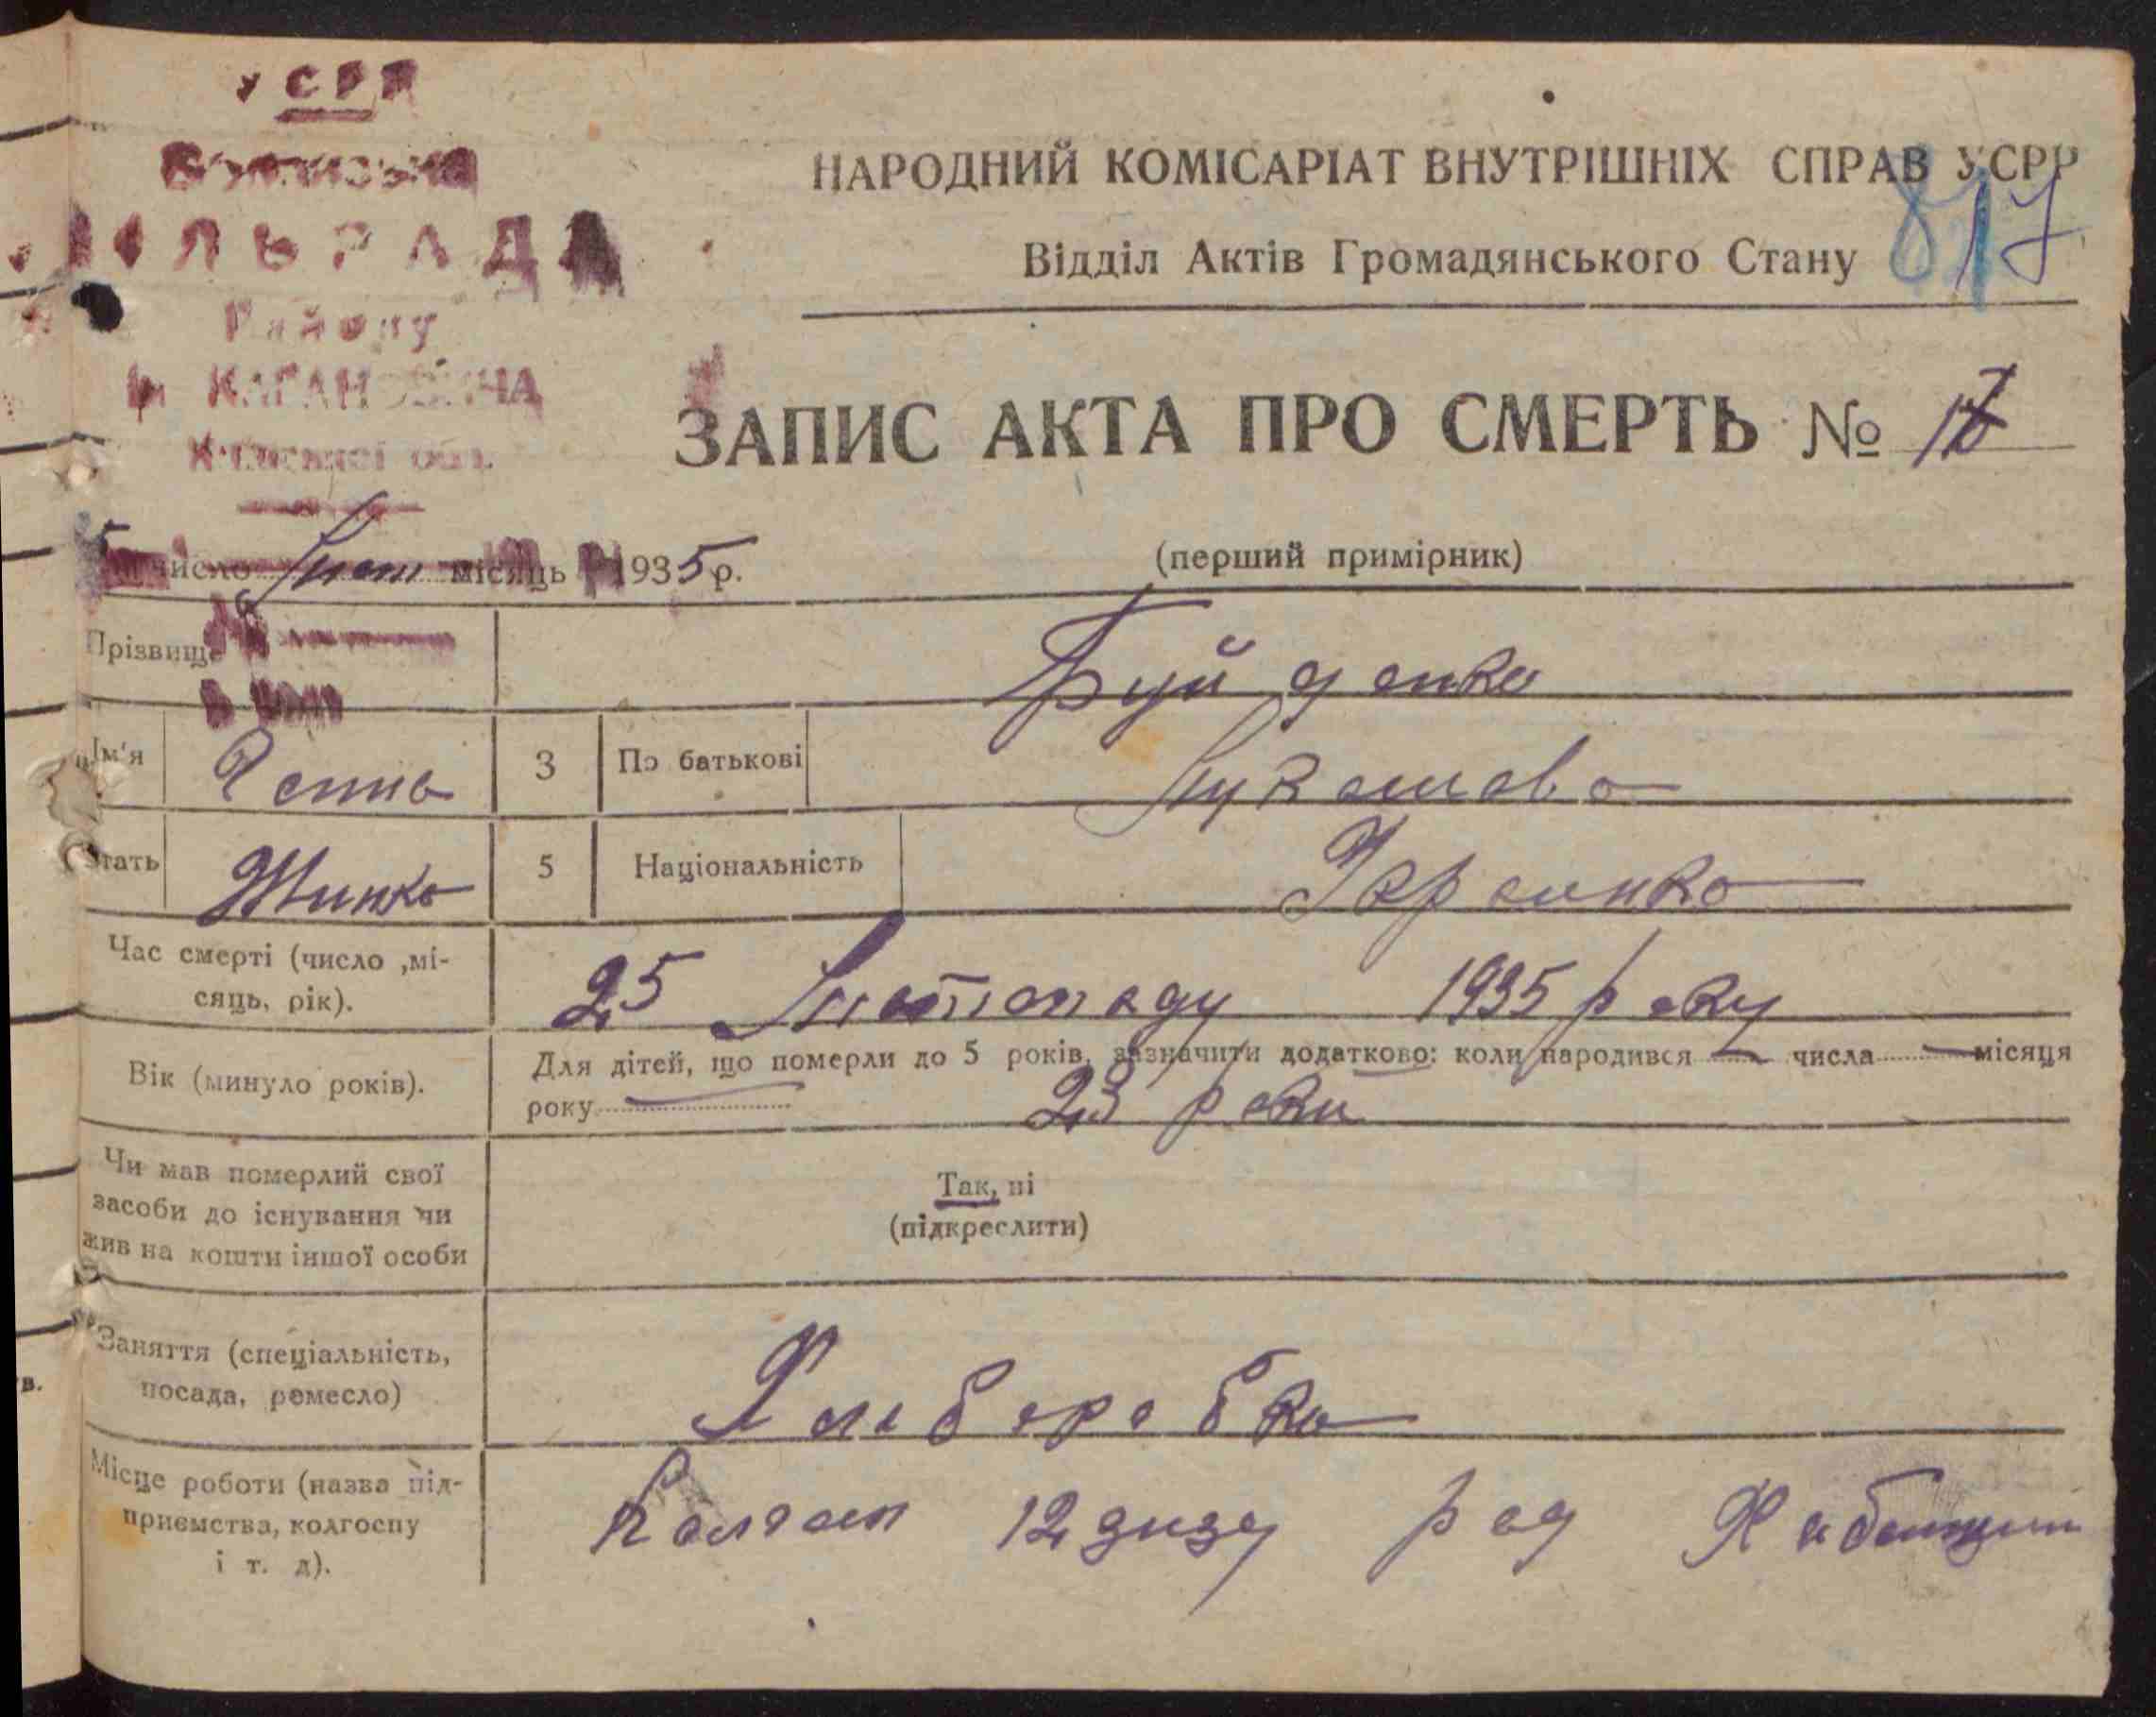 УСРР
СІЛЬРАДА
Району
ім КАГАНОВИЧА
Київської обл.
НАРОДНИЙ КОМІСАРІАТ ВНУТРІШНІХ СПРАВ УСРР
817
Відділ Актів Громадянського Стану
ЗАПИС АКТА ПРО СМЕРТЬ № 17
число Лист місяць 1935 р.
(перший примірник)
Прізвище
Буйденко
Ім'я
Ганна
3
По батькові
Лукашова
Стать
Жинка
5
Національність
Украинка
Час смерті (число ,мі-
сяць, рік).
25 Листопаду 1935 року
Вік (минуло років).
Для дітей, що померли до 5 років, зазначити додатково: коли народився числа місяця
року 23 роки
Чи мав померлий свої
засоби до існування чи
жив на кошти іншої особи
Так, ні
(підкреслити)
Заняття (спеціальність,
посада, ремесло)
Хлиборобка
Місце роботи (назва під-
приємства, колгоспу
і т. д).
Колгосп 12 зизд рад